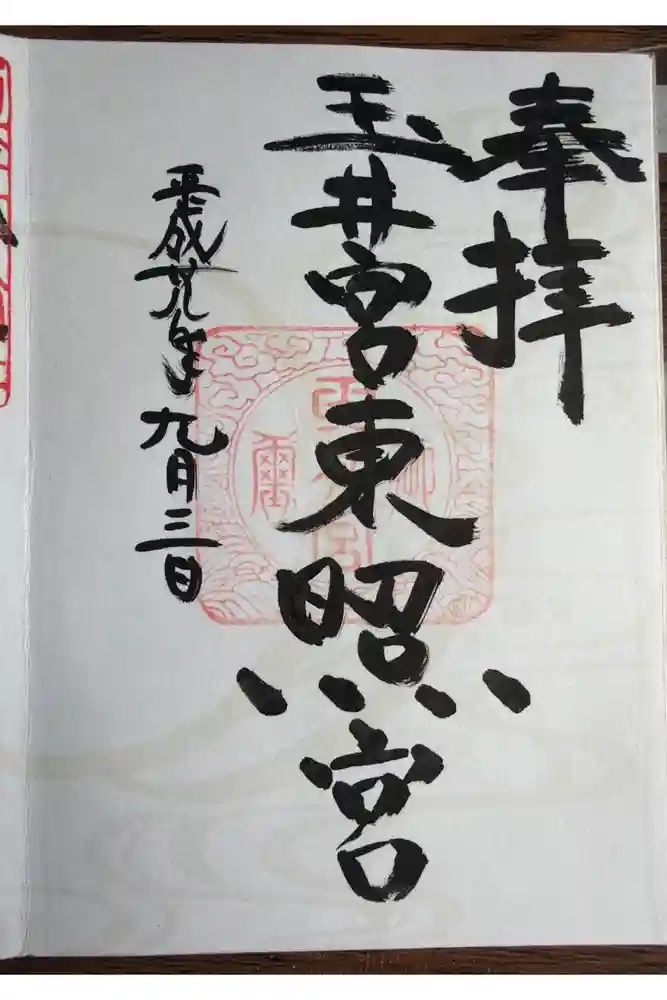 奉拝
玉井宮東照宮
平成廿九年九月三日